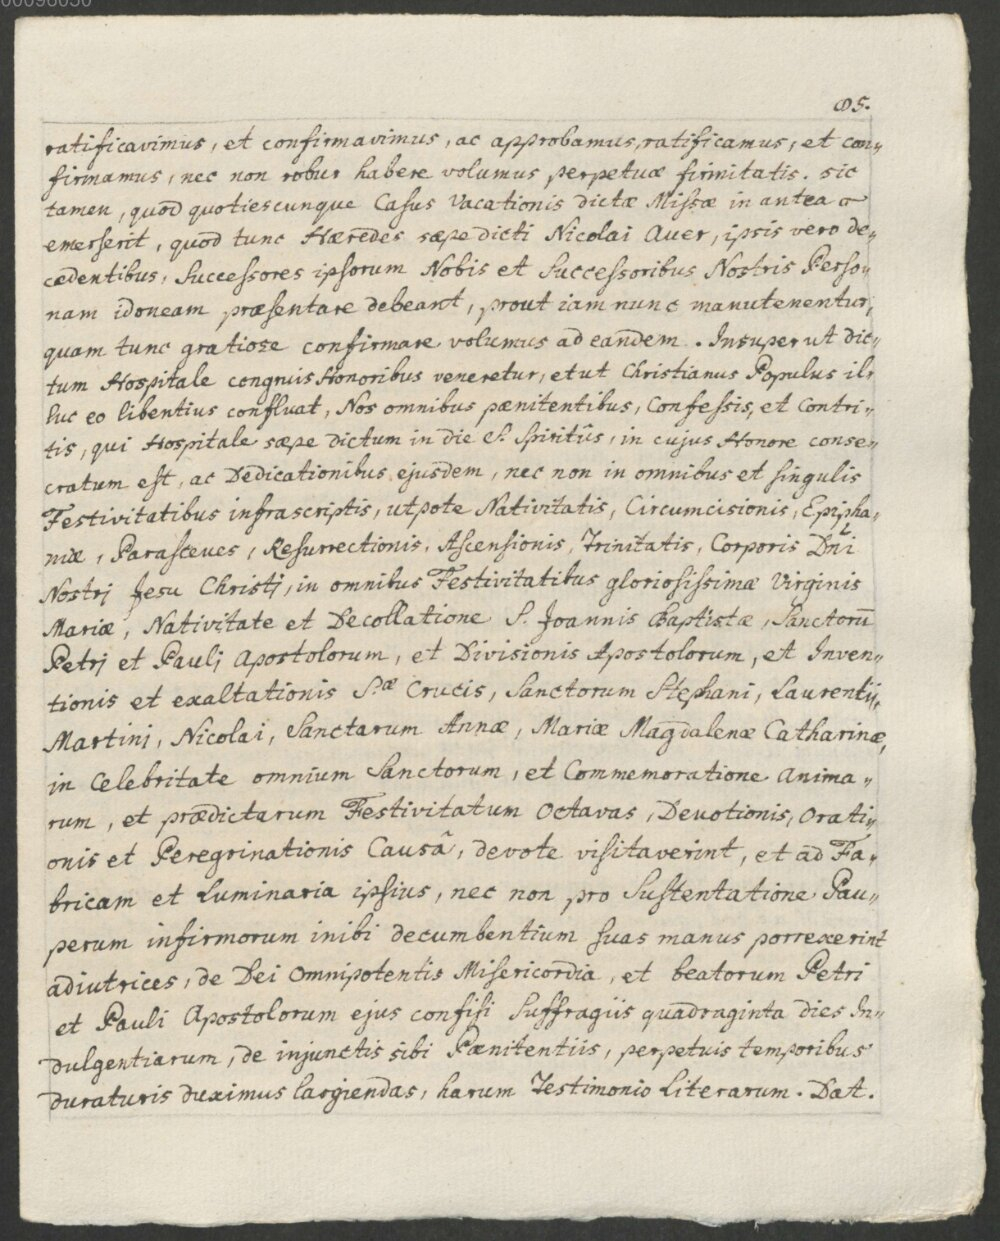 00096050
85.
ratificavimus, et confirmavimus, ac approbamus, ratificamus, et con„
firmamus, nec non robur habere volumus perpetuæ firmitatis. sic
tamen, quod quotiescunque Casus Vacationis dictæ Missæ in antea
emerserit, quod tunc Hæredes sæpe dicti Nicolai Auer, ipsis vero de„
cedentibus, Successores ipsorum Nobis et Successoribus Nostris Perso„
nam idoneam præsentare debeant, prout iam nunc manutenentur,
quam tunc gratiose confirmare volumus ad eandem. Insuper ut dic„
tum Hospitale congruis Honoribus veneretur, et ut Christianus Populus il„
luc eo libentius confluat, Nos omnibus pænitentibus, Confessis, et Contri„
tis, qui Hospitale sæpe dictum in die S. Spiritûs, in cujus Honore conse„
cratum est, ac Dedicationibus ejusdem, nec non in omnibus et singulis
Festivitatibus infrascriptis, utpote Nativitatis, Circumcisionis, Epipha„
niæ, Parasceves, Resurrectionis, Ascensionis, Trinitatis, Corporis Dñi
Nostrj Jesu Christj, in omnibus Festivitatibus gloriosissimæ Virginis
Mariæ, Nativitate et Decollatione S. Joannis Baptistæ, Sanctorū
Petrj et Paulj Apostolorum, et Divisionis Apostolorum, et Inven„
tionis et exaltationis S.æ Crucis, Sanctorum Stephani, Laurentij,
Martini, Nicolai, Sanctarum Annæ, Mariæ Magdalenæ Catharinæ,
in Celebritate omnium Sanctorum, et Commemoratione Anima„
rum, et prædictarum Festivitatum Octavas, Devotionis, Orati„
onis et Peregrinationis Causâ, devote visitaverint, et ad Fa„
bricam et Luminaria ipsius, nec non pro Sustentatione Pau„
perum infirmorum inibi decumbentium suas manus porrexerint
adiutrices, de Dei Omnipotentis Misericordia, et beatorum Petri
et Pauli Apostolorum ejus confisi Suffragiis quadraginta dies In„
dulgentiarum, de injunctis sibi Pænitentiis, perpetuis temporibus
duraturis duximus largiendas, harum Testimonio Literarum. Dat.